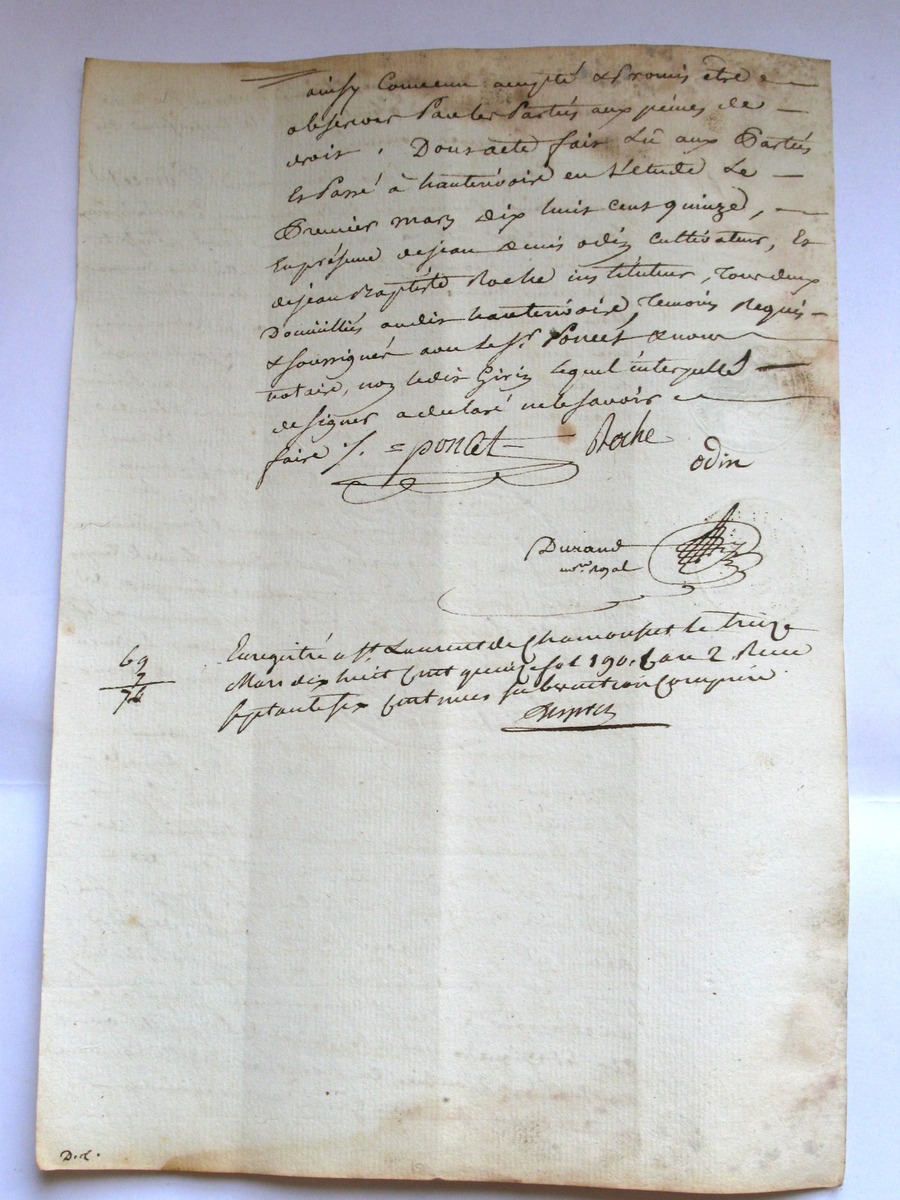 ainsy Convenu accepté & Promis être
observer Par les Partiés aux peines de
droit. Dont acte fait Lû aux Partiés
Et Passé à hauterivoire en L'étude Le
Premier mars dix huit cent quinze,
En présence de jean denis odin Cultivateur, Et
de jean Baptiste Roche instituteur, Tous deux
Domiciliés audit hauterivoire, Temoins Requis
& soussignés avec le Sr. Poncet & nous
notaire, non ledit Girin lequel interpellé
de signer a declaré ne le savoir
faire ./. = poncet = Roche
odin
Durand
nre. royal
69
7
76
Enregistré a St. Laurent de Chamousset le treize
Mars dix huit Cent quinze fol 190. Case 2 Recu
septante six Centimes subvention Comprise.
D.L.